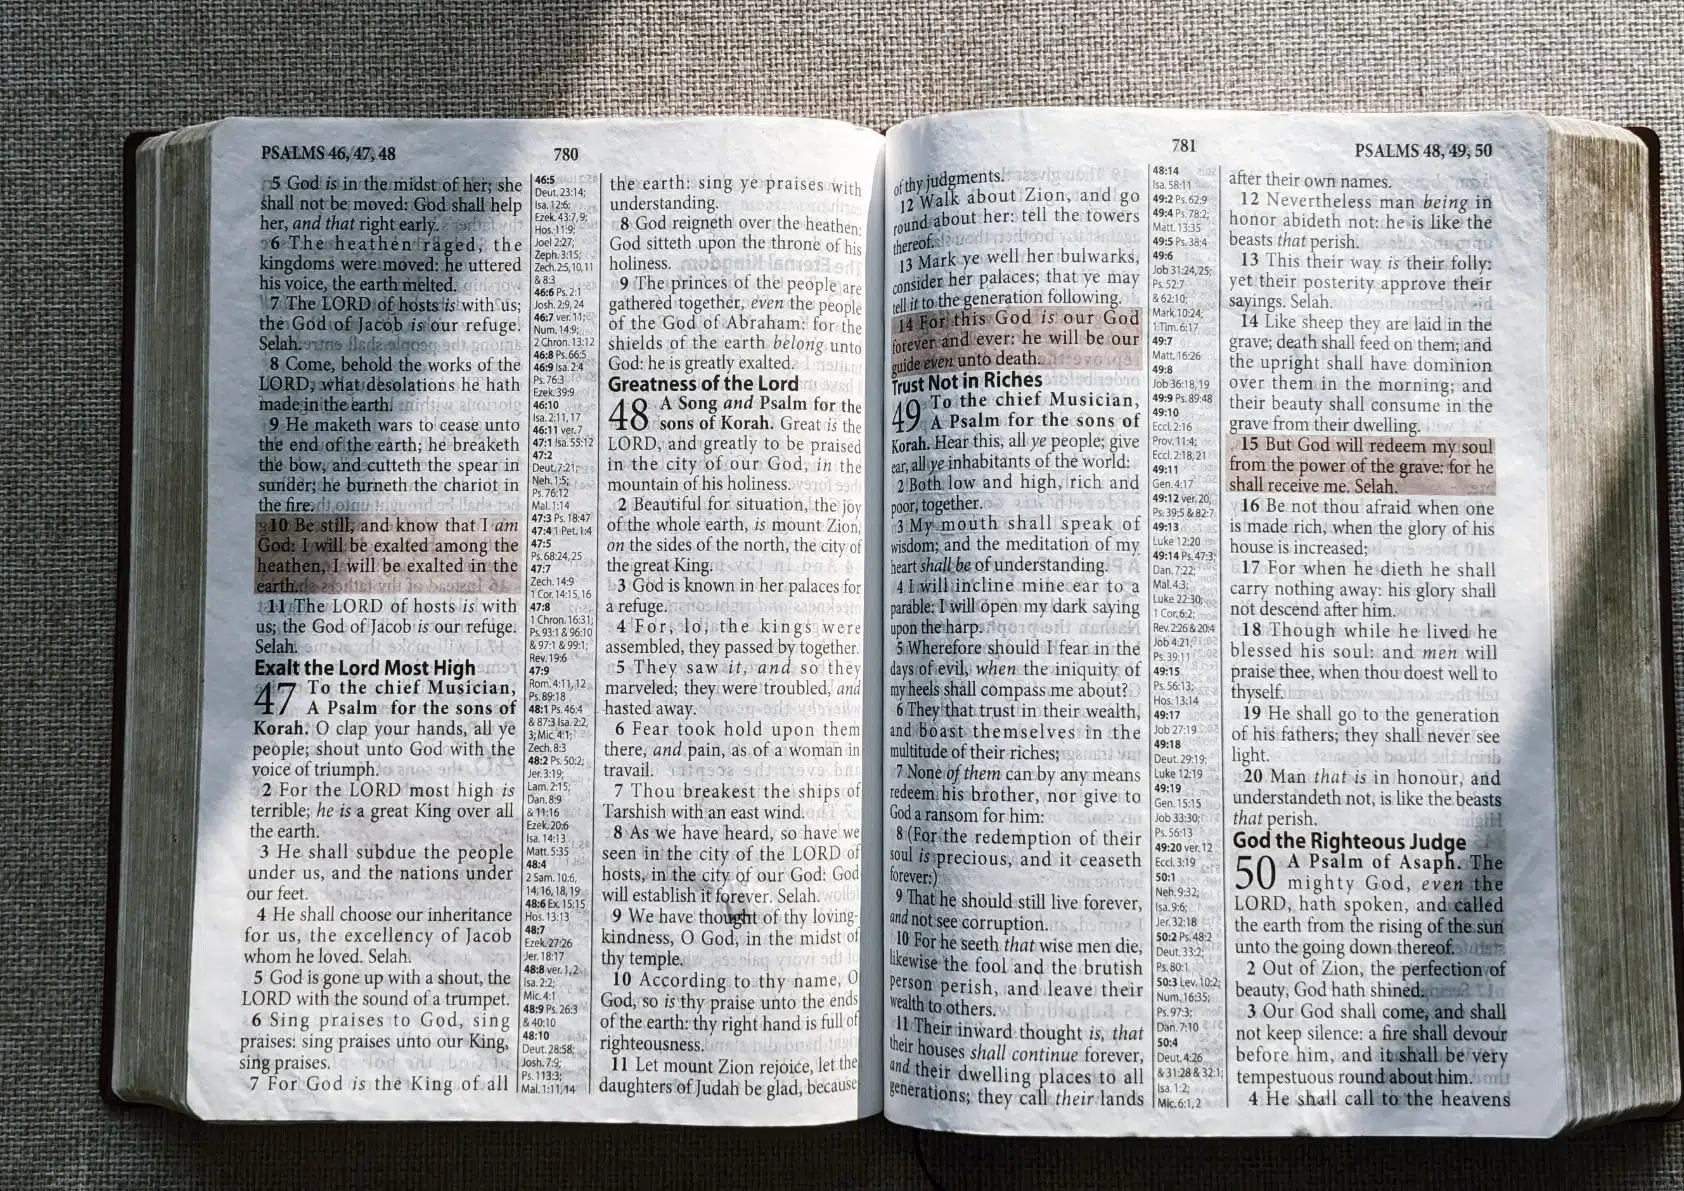 PSALMS 46, 47, 48
780
5 God is in the midst of her; she
shall not be moved: God shall help
her, and that right early.
6 The heathen raged, the
kingdoms were moved: he uttered
his voice, the earth melted.
7 The LORD of hosts is with us;
the God of Jacob is our refuge.
Selah.
8 Come, behold the works of the
LORD, what desolations he hath
made in the earth.
9 He maketh wars to cease unto
the end of the earth; he breaketh
the bow, and cutteth the spear in
sunder; he burneth the chariot in
the fire.
10 Be still, and know that I am
God: I will be exalted among the
heathen, I will be exalted in the
earth.
11 The LORD of hosts is with
us; the God of Jacob is our refuge.
Selah.
Exalt the Lord Most High
47 To the chief Musician,
A Psalm for the sons of
Korah. O clap your hands, all ye
people; shout unto God with the
voice of triumph.
2 For the LORD most high is
terrible; he is a great King over all
the earth.
3 He shall subdue the people
under us, and the nations under
our feet.
4 He shall choose our inheritance
for us, the excellency of Jacob
whom he loved. Selah.
5 God is gone up with a shout, the
LORD with the sound of a trumpet.
6 Sing praises to God, sing
praises: sing praises unto our King,
sing praises.
7 For God is the King of all
46:5
Deut. 23:14;
Isa. 12:6;
Ezek. 43:7, 9;
Hos. 11:9;
Joel 2:27;
Zeph. 3:15;
Zech. 2:5, 10, 11
& 8:3
46:6 Ps. 2:1
Josh. 2:9, 24
46:7 ver. 11;
Num. 14:9;
2 Chron. 13:12
46:8 Ps. 66:5
46:9 Isa. 2:4
Ps. 76:3
Ezek. 39:9
46:10
Isa. 2:11, 17
46:11 ver. 7
47:1 Isa. 55:12
47:2
Deut. 7:21;
Neh. 1:5;
Ps. 76:12
Mal. 1:14
47:3 Ps. 18:47
47:4 1 Pet. 1:4
47:5
Ps. 68:24, 25
47:7
Zech. 14:9
1 Cor. 14:15, 16
47:8
1 Chron. 16:31;
Ps. 93:1 & 96:10
& 97:1 & 99:1;
Rev. 19:6
47:9
Rom. 4:11, 12
Ps. 89:18
48:1 Ps. 46:4
& 87:3 Isa. 2:2,
3; Mic. 4:1;
Zech. 8:3
48:2 Ps. 50:2;
Jer. 3:19;
Lam. 2:15;
Dan. 8:9
& 11:16
Ezek. 20:6
Isa. 14:13
Matt. 5:35
48:4
2 Sam. 10:6,
14, 16, 18, 19
48:6 Ex. 15:15
Hos. 13:13
48:7
Ezek. 27:26
Jer. 18:17
48:8 ver. 1, 2
Isa. 2:2;
Mic. 4:1
48:9 Ps. 26:3
& 40:10
48:10
Deut. 28:58;
Josh. 7:9;
Ps. 113:3;
Mal. 1:11, 14
the earth: sing ye praises with
understanding.
8 God reigneth over the heathen:
God sitteth upon the throne of his
holiness.
9 The princes of the people are
gathered together, even the people
of the God of Abraham: for the
shields of the earth belong unto
God: he is greatly exalted.
Greatness of the Lord
48 A Song and Psalm for the
sons of Korah. Great is the
LORD, and greatly to be praised
in the city of our God, in the
mountain of his holiness.
2 Beautiful for situation, the joy
of the whole earth, is mount Zion,
on the sides of the north, the city of
the great King.
3 God is known in her palaces for
a refuge.
4 For, lo, the kings were
assembled, they passed by together.
5 They saw it, and so they
marveled; they were troubled, and
hasted away.
6 Fear took hold upon them
there, and pain, as of a woman in
travail.
7 Thou breakest the ships of
Tarshish with an east wind.
8 As we have heard, so have we
seen in the city of the LORD of
hosts, in the city of our God: God
will establish it forever. Selah.
9 We have thought of thy loving-
kindness, O God, in the midst of
thy temple.
10 According to thy name, O
God, so is thy praise unto the ends
of the earth: thy right hand is full of
righteousness.
11 Let mount Zion rejoice, let the
daughters of Judah be glad, because
781
PSALMS 48, 49, 50
of thy judgments.
12 Walk about Zion, and go
round about her: tell the towers
thereof.
13 Mark ye well her bulwarks,
consider her palaces; that ye may
tell it to the generation following.
14 For this God is our God
forever and ever: he will be our
guide even unto death.
Trust Not in Riches
49 To the chief Musician,
A Psalm for the sons of
Korah. Hear this, all ye people; give
ear, all ye inhabitants of the world:
2 Both low and high, rich and
poor, together.
3 My mouth shall speak of
wisdom; and the meditation of my
heart shall be of understanding.
4 I will incline mine ear to a
parable: I will open my dark saying
upon the harp.
5 Wherefore should I fear in the
days of evil, when the iniquity of
my heels shall compass me about?
6 They that trust in their wealth,
and boast themselves in the
multitude of their riches;
7 None of them can by any means
redeem his brother, nor give to
God a ransom for him:
8 (For the redemption of their
soul is precious, and it ceaseth
forever:)
9 That he should still live forever,
and not see corruption.
10 For he seeth that wise men die,
likewise the fool and the brutish
person perish, and leave their
wealth to others.
11 Their inward thought is, that
their houses shall continue forever,
and their dwelling places to all
generations; they call their lands
48:14
Isa. 58:11
49:2 Ps. 62:9
49:4 Ps. 78:2;
Matt. 13:35
49:5 Ps. 38:4
49:6
Job 31:24, 25;
Ps. 52:7
& 62:10;
Mark 10:24;
1 Tim. 6:17
49:7
Matt. 16:26
49:8
Job 36:18, 19
49:9 Ps. 89:48
49:10
Eccl. 2:16
Prov. 11:4;
Eccl. 2:18, 21
49:11
Gen. 4:17
49:12 ver. 20;
Ps. 39:5 & 82:7
49:13
Luke 12:20
49:14 Ps. 47:3;
Dan. 7:22;
Mal. 4:3;
Luke 22:30;
1 Cor. 6:2;
Rev. 2:26 & 20:4
Job 4:21;
Ps. 39:11
49:15
Ps. 56:13;
Hos. 13:14
49:17
Job 27:19
49:18
Deut. 29:19;
Luke 12:19
49:19
Gen. 15:15
Job 33:30;
Ps. 56:13
49:20 ver. 12
Eccl. 3:19
50:1
Neh. 9:32;
Isa. 9:6;
Jer. 32:18
50:2 Ps. 48:2
Deut. 33:2;
Ps. 80:1
50:3 Lev. 10:2;
Num. 16:35;
Ps. 97:3;
Dan. 7:10
50:4
Deut. 4:26
& 31:28 & 32:1;
Isa. 1:2;
Mic. 6:1, 2
after their own names.
12 Nevertheless man being in
honor abideth not: he is like the
beasts that perish.
13 This their way is their folly:
yet their posterity approve their
sayings. Selah.
14 Like sheep they are laid in the
grave; death shall feed on them; and
the upright shall have dominion
over them in the morning; and
their beauty shall consume in the
grave from their dwelling.
15 But God will redeem my soul
from the power of the grave: for he
shall receive me. Selah.
16 Be not thou afraid when one
is made rich, when the glory of his
house is increased;
17 For when he dieth he shall
carry nothing away: his glory shall
not descend after him.
18 Though while he lived he
blessed his soul: and men will
praise thee, when thou doest well to
thyself.
19 He shall go to the generation
of his fathers; they shall never see
light.
20 Man that is in honour, and
understandeth not, is like the beasts
that perish.
God the Righteous Judge
50 A Psalm of Asaph. The
mighty God, even the
LORD, hath spoken, and called
the earth from the rising of the sun
unto the going down thereof.
2 Out of Zion, the perfection of
beauty, God hath shined.
3 Our God shall come, and shall
not keep silence: a fire shall devour
before him, and it shall be very
tempestuous round about him.
4 He shall call to the heavens